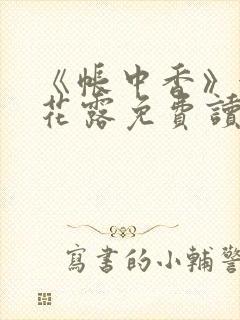 《帳中香》
花露免費讀
寫書的小輔警